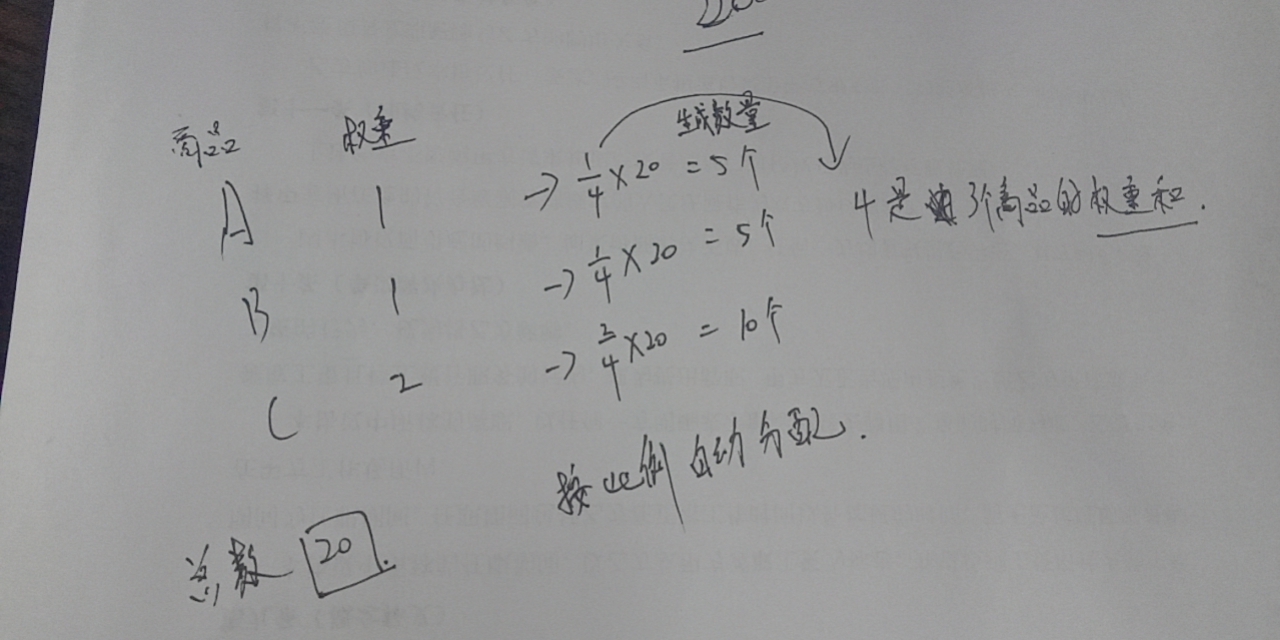 商品 权重 生成数量
A 1 → 1/4 × 20 = 5个 4是 3个商品的权重和.
B 1 → 1/4 × 20 = 5个
C 2 → 2/4 × 20 = 10个
按比例自动分配.
总数 20.